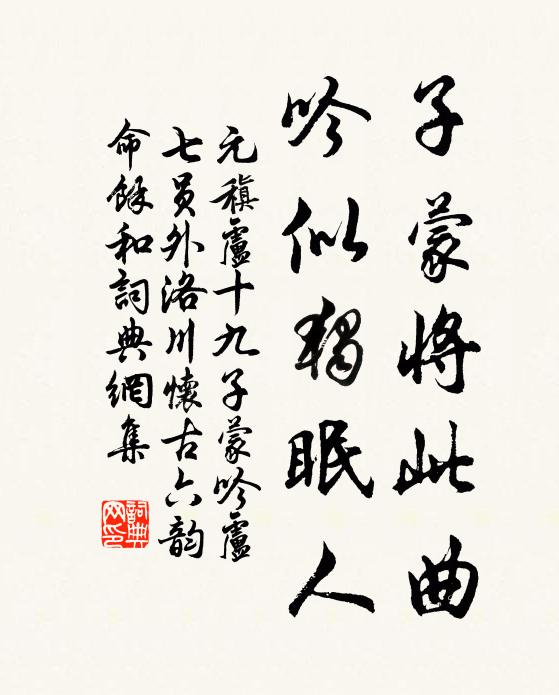 子蒙將此曲
吟似獨眠人
元稹盧十九子蒙吟盧
七員外洛川懷古六韵
命餘和詞典網集
詞典网印